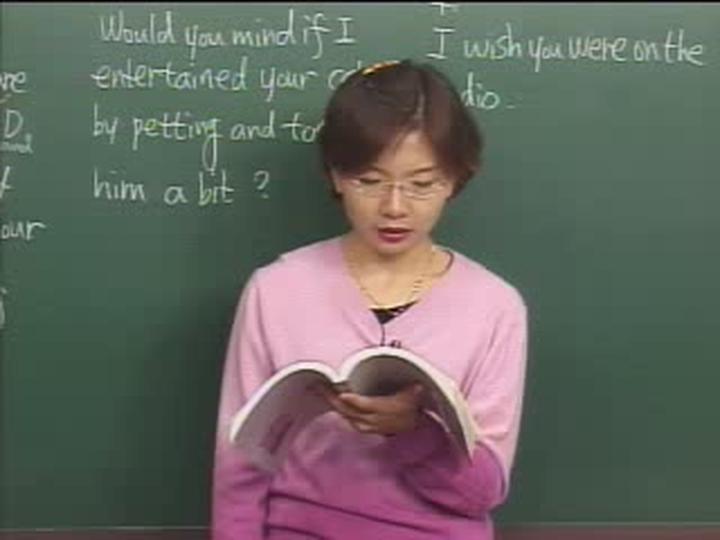 Would you mind if I
entertained your
by petting and
him a bit ?
I wish you were on the
our